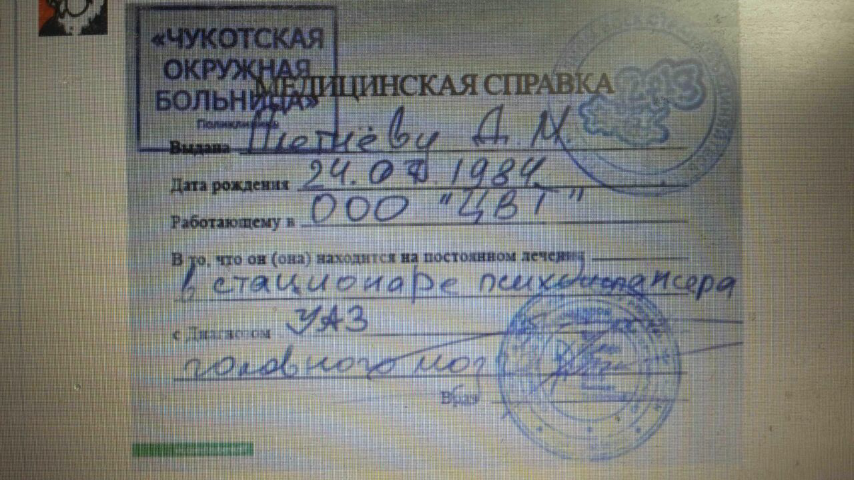 «ЧУКОТСКАЯ
ОКРУЖНАЯ
БОЛЬНИЦА»
МЕДИЦИНСКАЯ СПРАВКА
Выдана Д. М.
Дата рождения 24. 1984
Работающему в ООО "ЦВТ"
В то, что он (она) находится на постоянном лечении
в стационаре психдиспансера
с Диагнозом УАЗ
головного моз
Врач